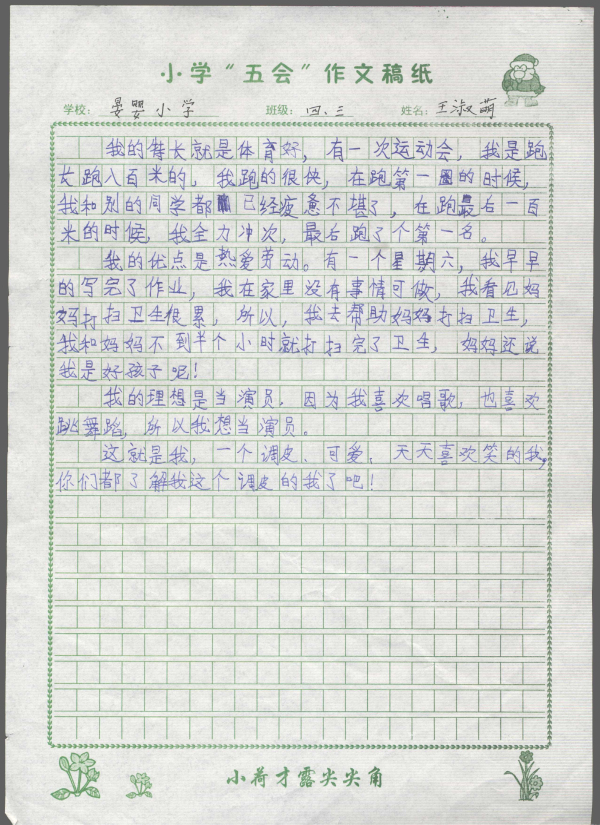 小学“五会”作文稿纸
学校: 晏婴小学 班级: 四、三 姓名: 王淑萌
我的特长就是体育好，有一次运动会，我是跑
长跑八百米的，我跑的很快，在跑第一圈的时候，
我和别的同学都已经疲惫不堪了，在跑最后一百
米的时候，我全力冲次，最后跑了个第一名。
我的优点是热爱劳动。有一个星期六，我早早
的写完了作业，我在家里没有事情可做，我看见妈
妈打扫卫生很累，所以，我去帮助妈妈打扫卫生，
我和妈妈不到半个小时就打扫完了卫生，妈妈还说
我是好孩子呢！
我的理想是当演员，因为我喜欢唱歌，也喜欢
跳舞蹈，所以我想当演员。
这就是我，一个调皮、可爱、天天喜欢笑的我，
你们都了解我这个调皮的我了吧！
小荷才露尖尖角